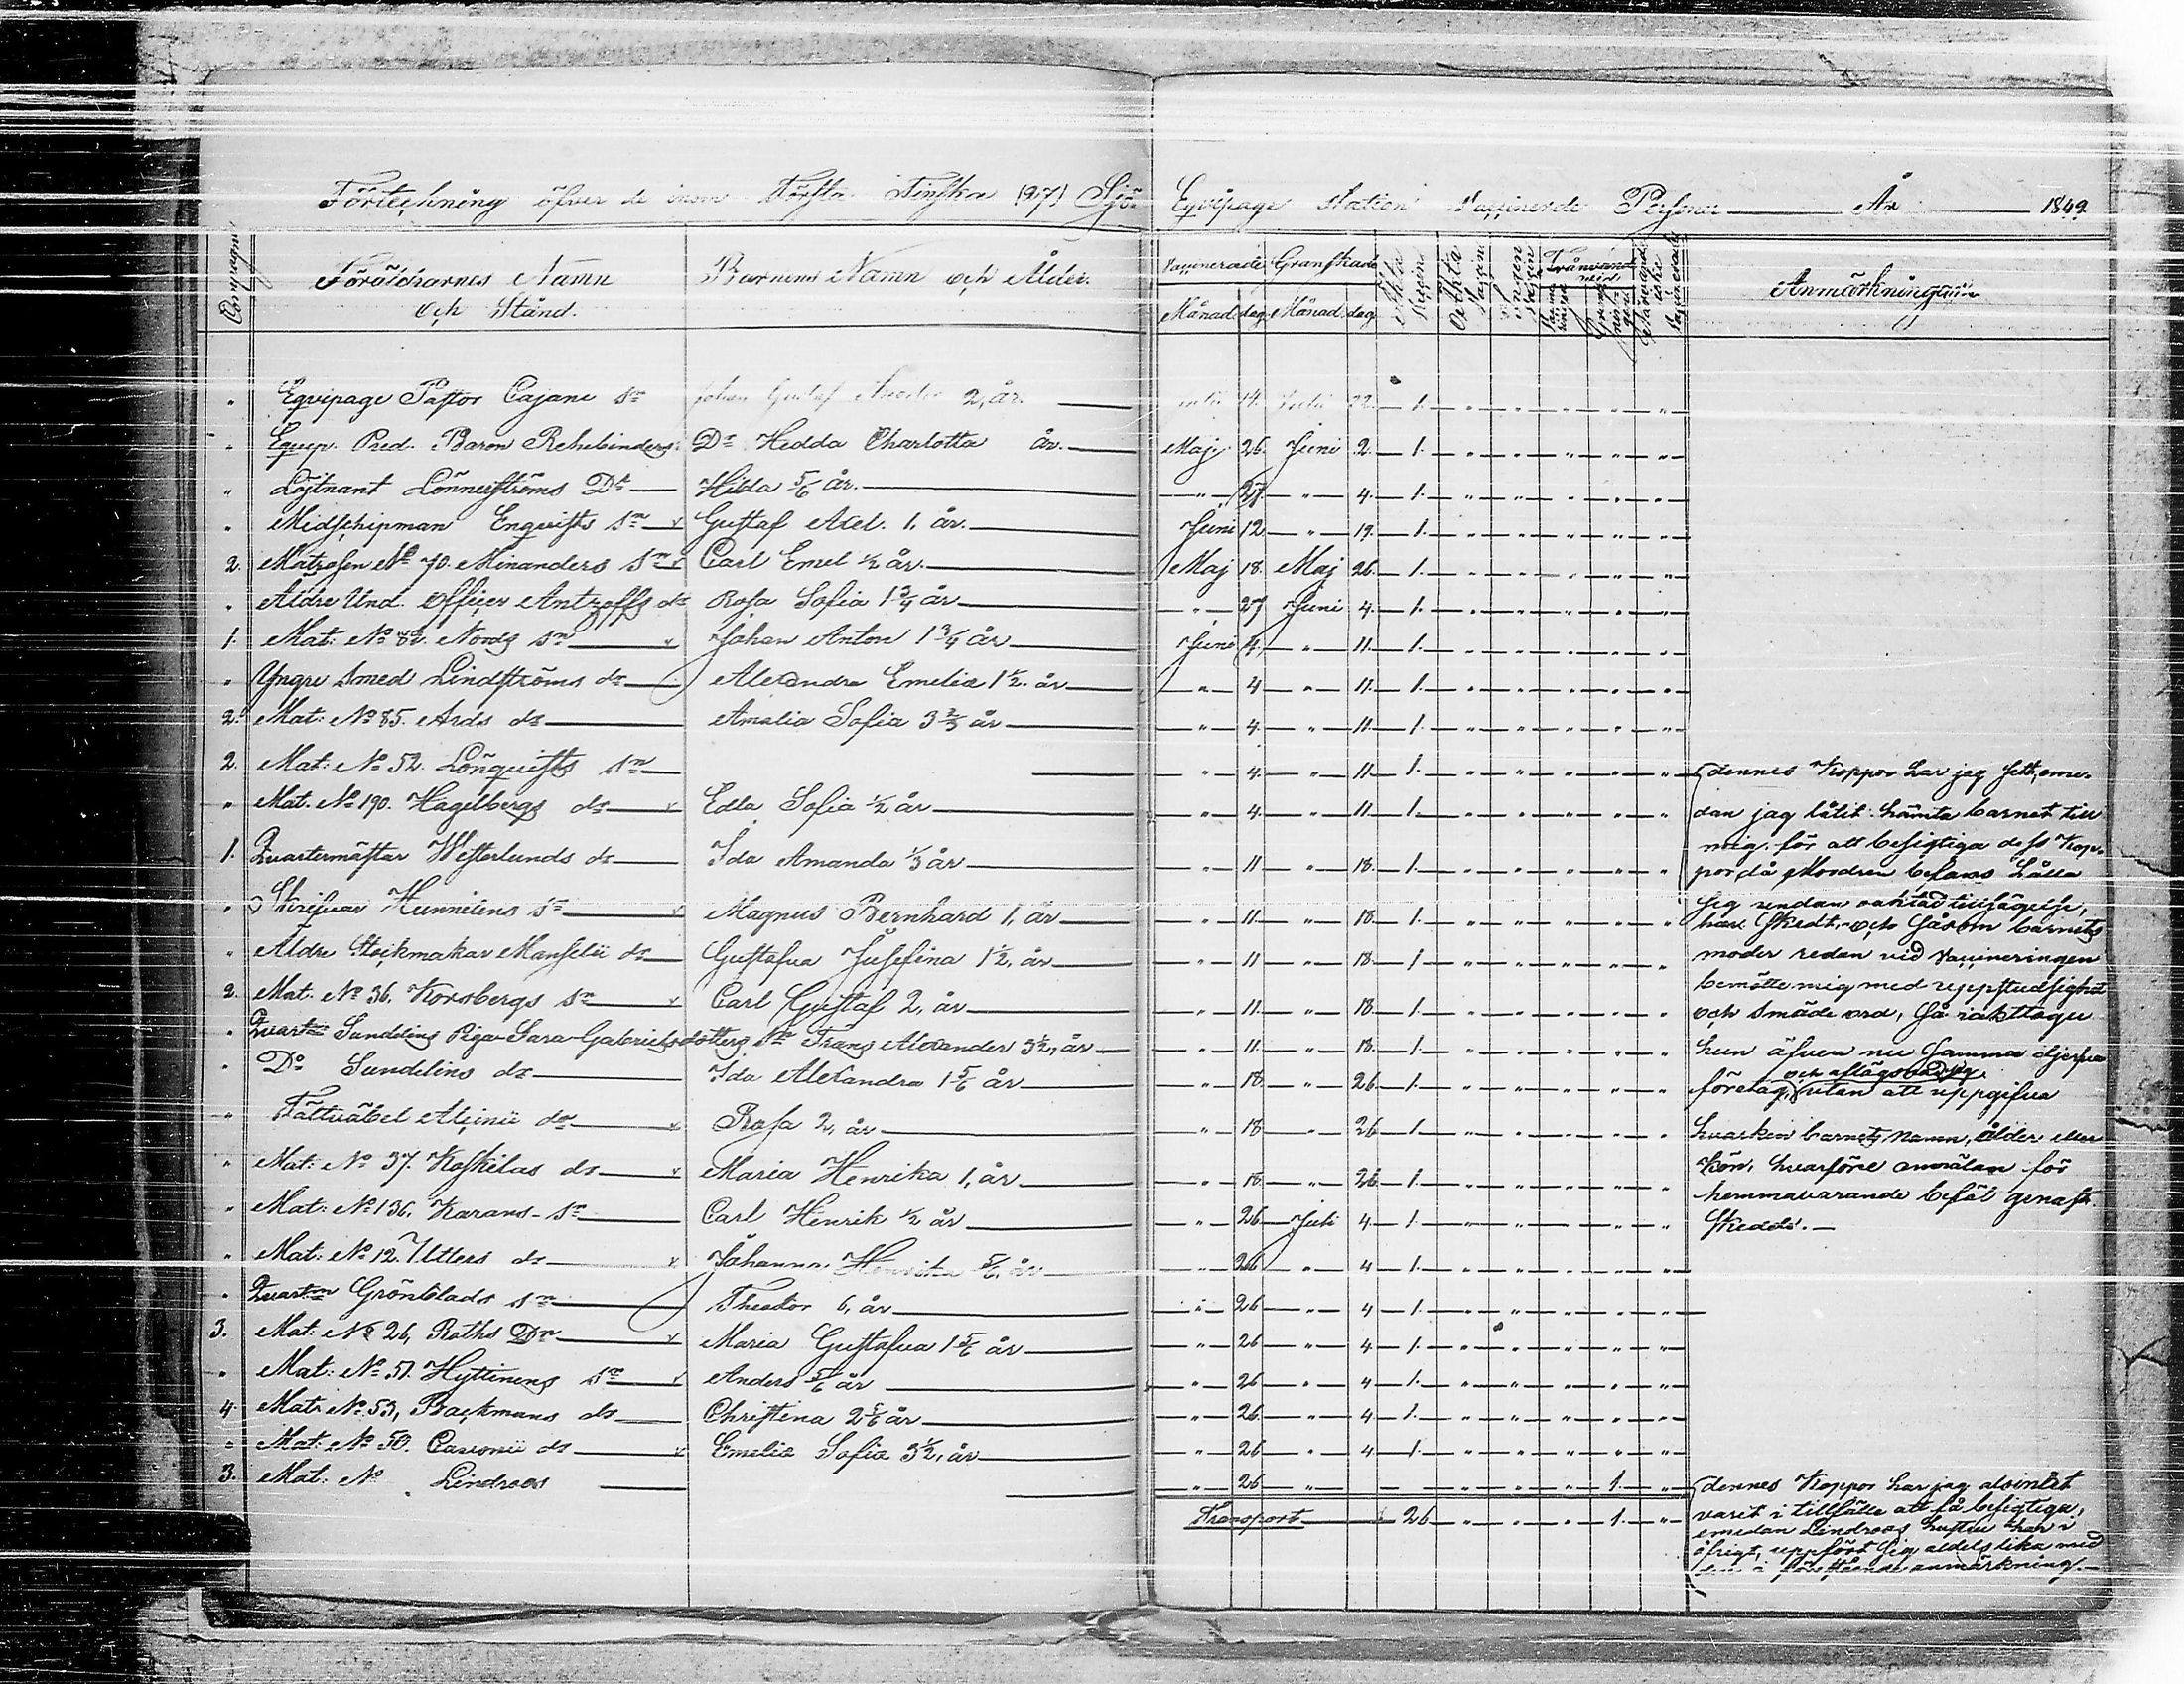 Förteckning öfver de inom Första Finska (27) Sjö Eqvipage Station Vaccinerde Personer År 1849
Compagnie
Föräldrarnes Namn och Stånd.
Barnens Namn och Ålder.
Vaccinerade Granskade
Månad dag Månad dag
Ächta Vaccin
Oächta Vaccin
Ingen Vaccin
Frånvarande vid
Anmärkningar
" Eqvipage Pastor Cajani sn Johan Gustaf 2, år. 14. Julii 22. 1. " " " " " "
" Eqvip. Pred. Baron Rehebinders Dr Hedda Charlotta år. Maj. 26. Juni 2. 1. " " " " " "
" Löjtnant Lönnerströms Dr Hilda 5/6 år. " 27. " 4. 1. " " " " " "
" Midschipman Enqvists sn v Gustaf Axel. 1. år. Juni 12 " 19. 1. " " " " " "
2. Matrosen No 70. Minanders sn v Carl Emel 1/2 år. Maj 18. Maj 26. 1. " " " " " "
" Äldre Und. Officer Antzoffs dr Rosa Sofia 1 3/4 år " 27 Juni 4. 1. " " " " " "
1. Mat: No 82. Nords sn v Johan Anton 1 3/4 år Juni 4. " 11. 1. " " " " " "
" Yngre Smed Lindströms dr Alexandra Emelia 1 1/2. år " 4 " 11. 1. " " " " " "
2. Mat: No 85. Ards dr Amalia Sofia 3 2/3 år " 4. " 11. 1. " " " " " "
2. Mat: No 52. Lönqvists sn " 4. " 11. 1. " " " " " " dennes Koppor har jag sett, eme-
" Mat. No 190. Hagelbergs dr v Edla Sofia 1/2 år " 4. " 11. 1. " " " " " " dan jag låtit hämta barnet till
mig. för att besigtiga dess Kop-
1. Qvartermästar Westerlunds dr Ida Amanda 1/3 år " 11 " 18. 1. " " " " " " por, då Modren befans hålla
sig undan oaktad tillsägelse,
" Skrifvar Hunnilens sn v Magnus Bernhard 1, år " 11. " 18. 1. " " " " " " have skedt, och såsom barnets
" Äldre Stockmakar Manselii dr Gustafva Jusefina 1 1/2, år " 11 " 18. 1 " " " " " " moder redan vid Vaccineringen
bemötte mig med uppstudsighet
2. Mat. No 36. Korsbergs sn v Carl Gustaf 2, år " 11. " 18. 1. " " " " " " och smäde ord, så iakttager
" Qvartm Sundelins Piga Sara Gabrielsdotters sn Frans Alexander 3 1/2, år " 11. " 18. 1. " " " " " " hun äfven nu samma djerfva
och aflägsnad sig
" Do Sundelins dr Ida Alexandra 1 5/6 år " 18. " 26. 1. " " " " " " företag, utan att uppgifva
" Fältväbel Alcinii dr v Rosa 2, år " 18 " 26 1. " " " " " " hvarken barnets Namn, ålder eller
" Mat: No 37. Koskelas dr v Maria Henrika 1, år " 18. " 26. 1. " " " " " " Kön, hvarföre anmälan för
hemmavarande befäl genast
" Mat: No 136. Karans sn Carl Henrik 1/2 år " 26 Juli 4. 1. " " " " " " skedde.
" Mat: No 12. Utters dr v Johanna Henrika 5/6. år " 26 " 4 1. " " " " " "
" Qvartm Grönblads sn Theodor 6, år " 26 " 4 1. " " " " " "
3. Mat: No 26, Roths Dr v Maria Gustafva 1 5/6 år " 26 " 4 1. " " " " " "
" Mat: No 51. Hyttinens sn v Anders 5/6 år " 26 " 4 1. " " " " " "
4. Mat: No 53, Backmans dr Christina 2 5/6 år " 26. " 4 1. " " " " " "
" Mat: No 50. Casionii dr v Emelia Sofia 3 1/2, år " 26 " 4 1. " " " " " "
3. Mat: No Lindroos " 26 " " " " 1. " dennes Koppor har jag alsintet
Transport 26 " " " " 1. " varit i tillfälle att få besigtiga,
emedan Lindroos hustru har i
öfrigt, uppfört sig aldels lika med
den i förestående anmärkning.